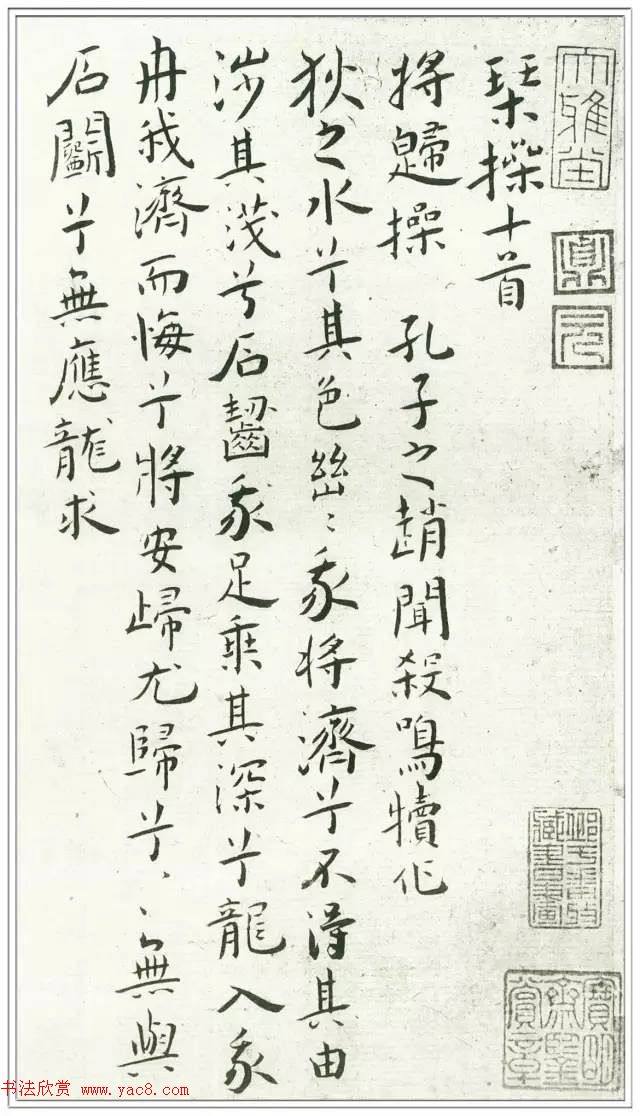 大雅堂
琹操十首
將歸操　孔子之趙聞殺鳴犢作
狄之水兮其色幽〻我將濟兮不得其由
涉其淺兮石齧我足乘其深兮龍入我
舟我濟而悔兮將安歸尤歸兮〻〻無與
石鬭兮無應龍求
书法欣赏 www.yac8.com